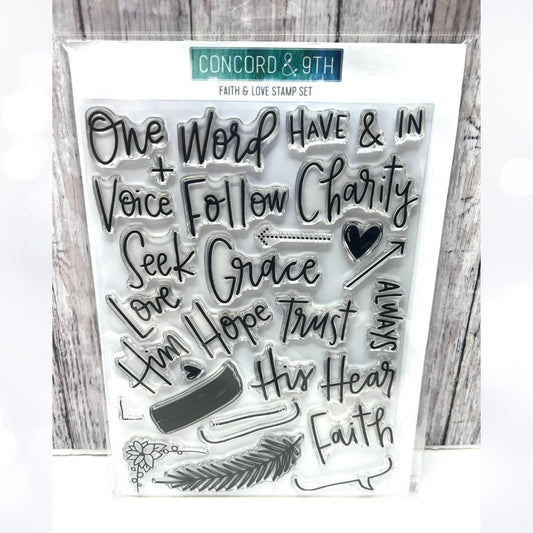 CONCORD & 9TH
FAITH & LOVE STAMP SET
One Word HAVE & IN
+
Voice Follow Charity
Seek Grace
Love Hope Trust ALWAYS
Him
His Hear
Faith